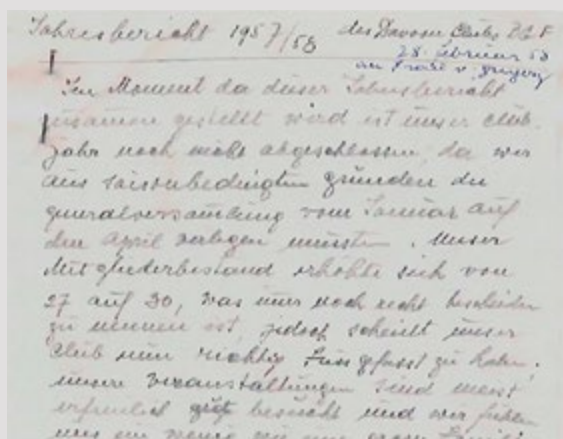 Jahresbericht 1957/58 des Davoser Clubs
28. Februar 58
Im Moment da dieser Jahresbericht
zusamen gestellt wird ist unser Club-
Jahr noch nicht abgeschlossen, da wir
aus saisonbedingten gründen die
generalversamlung vom Januar auf
den April verlegen mussten. Unser
Mitgliederbestand erhöhte sich von
27 auf 30, was immer noch recht bescheiden
zu nennen ist, jedoch scheint unser
Club nun richtig Fuss gefasst zu haben,
unsere Veranstaltungen sind meist
erfreulich gut besucht und wir fühlen
uns ein wenig wie eine